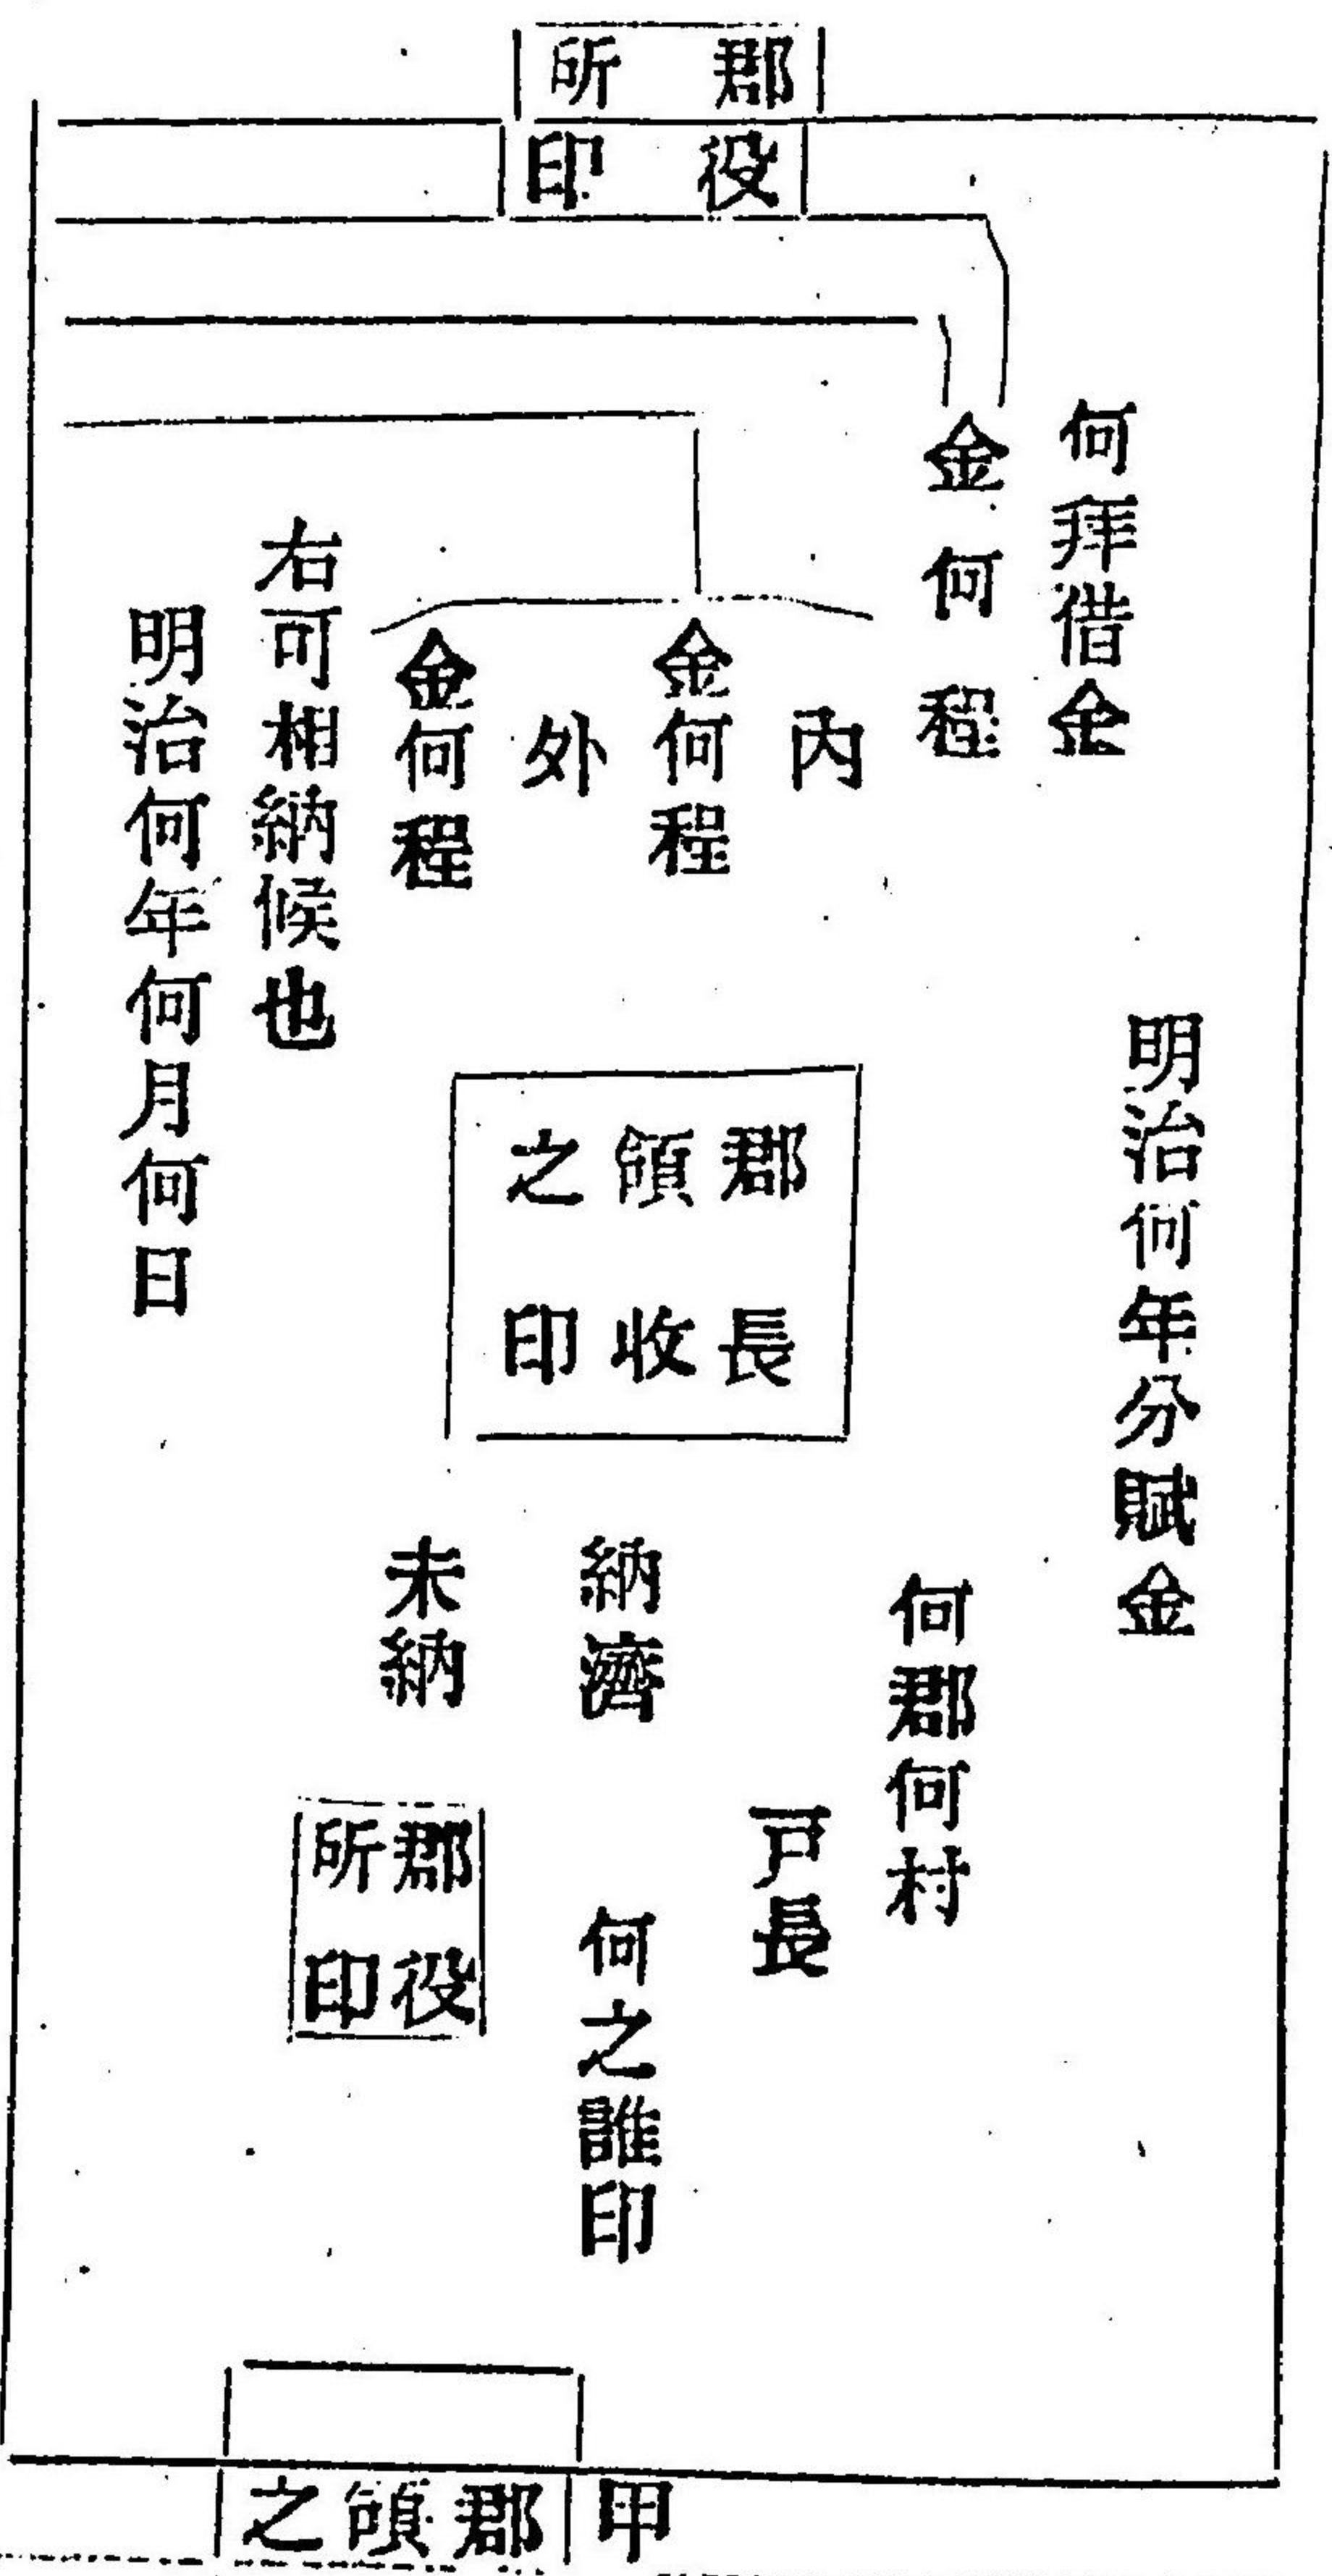 郡役
所印
明治何年分賦金
何拜借金
金何程
內
金何程
外
金何程
右可相納候也
明治何年何月何日
郡長
領收
之印
何郡何村
戸長
何之誰印
納濟
未納
郡役
所印
甲
郡領之